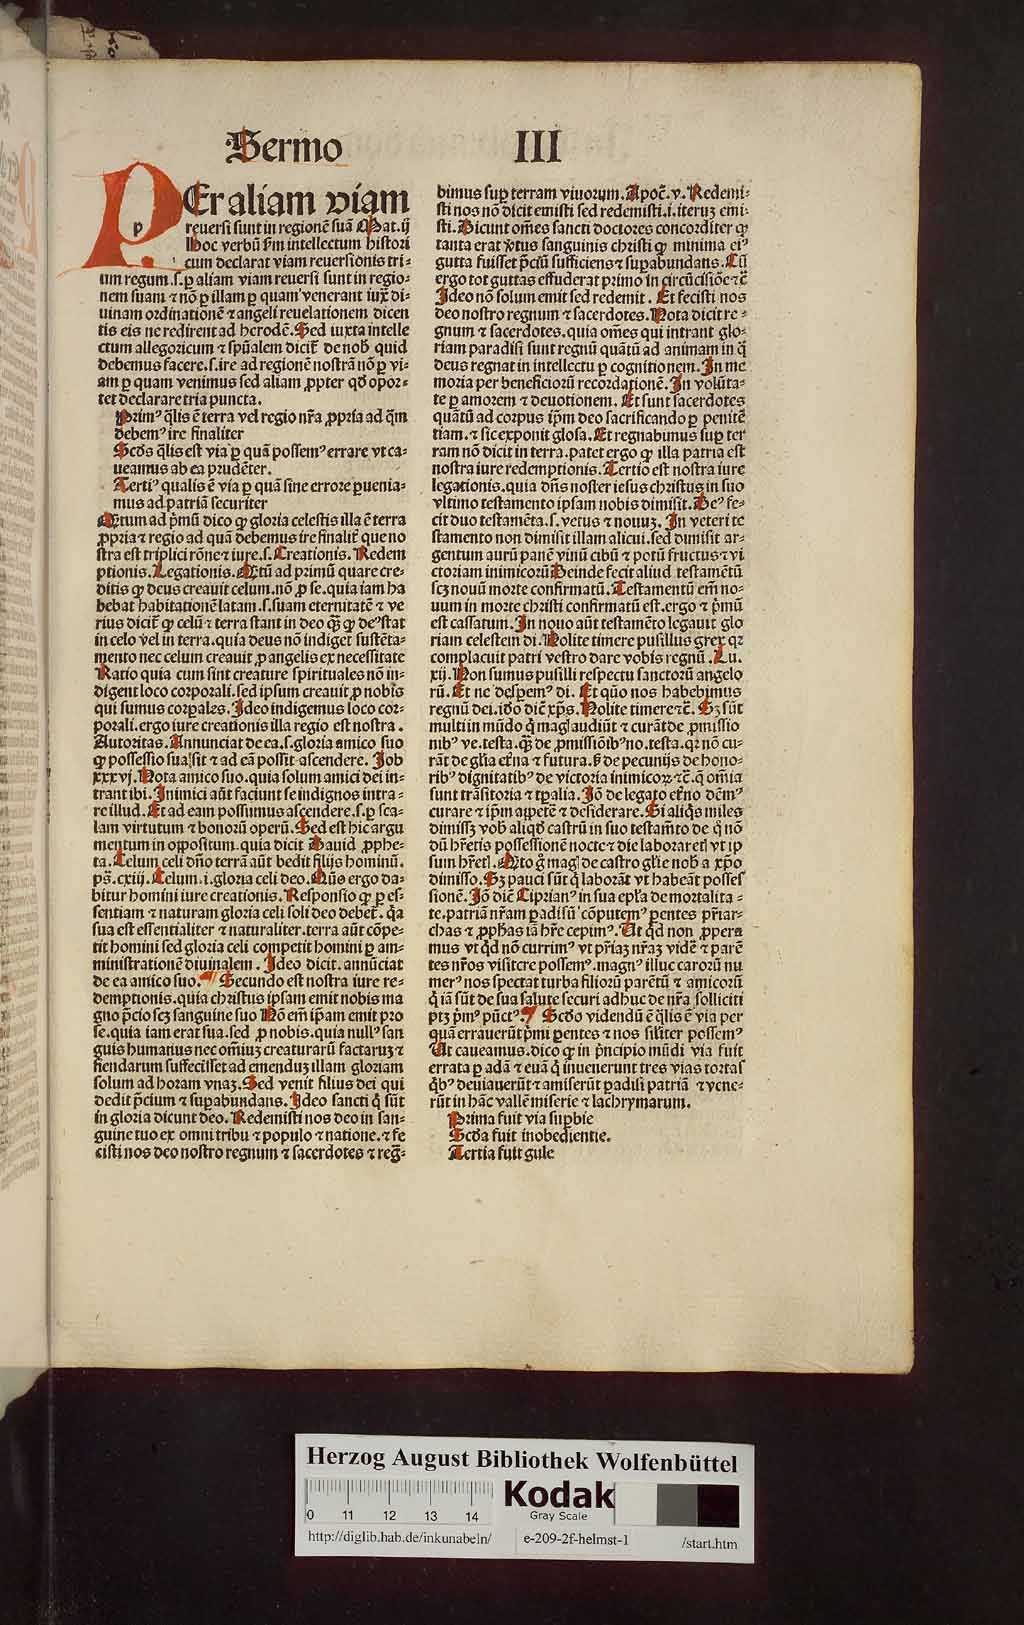 Sermo III
PEr aliam viam
reuersi sunt in regionē suā Mat. ij
Hoc verbū scḋm intellectum histori
cum declarat viam reuersionis tri-
um regum .s. ꝑ aliam viam reuersi sunt in regio-
nem suam ⁊ nō ꝑ illam ꝑ quam venerant iuxͣ di-
uinam ordinationē ⁊ angeli reuelationem dicen
tis eis ne redirent ad herodē. Sed iuxta intelle
ctum allegoricum ⁊ spūalem dicit̄ de nob̄ quid
debemus facere .s. ire ad regionē nostrā nō ꝑ vi-
am ꝑ quam venimus sed aliam ꝓpter qḋ opor-
tet declarare tria puncta.
Primꝰ q̄lis ē terra vel regio nr̄a ꝓpria ad q̄m
debemꝰ ire finaliter
Scḋs q̄lis est via ꝑ quā possemꝰ errare vt ca-
ueamus ab ea prudēter.
Tertiꝰ qualis ē via ꝑ quā sine errore ꝑuenia-
mus ad patriā securiter
Qtum ad pͥmū dico ꝙ gloria celestis illa ē terra
ꝓpria ⁊ regio ad quā debemus ire finalit̄ que no
stra est triplici rōne ⁊ iure .s. Creationis. Redem
ptionis. Legationis. Qtū ad primū quare cre-
ditis ꝙ deus creauit celum. nō ꝓ se. quia iam ha
bebat habitationē latam .s. suam eternitatē ⁊ ve
rius dicit̄ ꝙ celū ⁊ terra stant in deo qͣ̄ ꝙ deꝰ stat
in celo vel in terra. quia deus nō indiget sustēta-
mento nec celum creauit ꝓ angelis ex necessitate
Ratio quia cum sint creature spirituales nō in-
digent loco corporali. sed ipsum creauit ꝓ nobis
qui sumus corꝑales. Ideo indigemus loco cor-
porali. ergo iure creationis illa regio est nostra.
Autoritas. Annunciat de ea .s. gloria amico suo
ꝙ possessio sua sit ⁊ ad eā possit ascendere. Job
xxxvj. Nota amico suo. quia solum amici dei in-
trant ibi. Inimici aūt faciunt se indignos intra-
re illud. Et ad eam possumus ascendere .s. ꝑ sca-
lam virtutum ⁊ bonorū operū. Sed est hic argu
mentum in oppositum. quia dicit Dauid ꝓphe-
ta. Celum celi dn̄o terrā aūt dedit filijs hominū.
ps̄. cxiij. Celum .i. gloria celi deo. Qūo ergo da-
bitur homini iure creationis. Responsio ꝙ ꝑ es-
sentiam ⁊ naturam gloria celi soli deo debet̄. qͣ
sua est essentialiter ⁊ naturaliter. terra aūt cōpe-
tit homini sed gloria celi competit homini ꝑ am-
ministrationē diuinalem. Ideo dicit. annūciat
de ea amico suo. ¶ Secundo est nostra iure re-
demptionis. quia christus ipsam emit nobis ma
gno p̄cio scꝫ sanguine suo Nō em̄ ip̄am emit pro
se. quia iam erat sua. sed ꝓ nobis. quia nullꝰ san
guis humanus nec omniuꝫ creaturarū factaruꝫ ⁊
fiendarum suffecisset ad emenduꝫ illam gloriam
solum ad horam vnaꝫ. Sed venit filius dei qui
dedit p̄cium ⁊ suꝑabundans. Ideo sancti q̇ sūt
in gloria dicunt deo. Redemisti nos deo in san-
guine tuo ex omni tribu ⁊ populo ⁊ natione. ⁊ fe
cisti nos deo nostro regnum ⁊ sacerdotes ⁊ reg-
bimus suꝑ terram viuorum. Apoc̄. v. Redemi-
sti nos nō dicit emisti sed redemisti .i. iteruꝫ emi-
sti. Dicunt om̄es sancti doctores concorditer ꝙ
tanta erat v̄tus sanguinis christi ꝙ minima eiꝰ
gutta fuisset p̄ciū sufficiens ⁊ suꝑabundans. Cū
ergo tot guttas effuderat primo in circūcisiōe ⁊c̄
Ideo nō solum emit sed redemit. Et fecisti nos
deo nostro regnum ⁊ sacerdotes. Nota dicit re-
gnum ⁊ sacerdotes. quia om̄es qui intrant glo-
riam paradisi sunt regnū quātū ad animam in q̄
deus regnat in intellectu ꝑ cognitionem. In me
moria per beneficiorū recordationē. In volūta-
te ꝑ amorem ⁊ deuotionem. Et sunt sacerdotes
quātū ad corpus ip̄m deo sacrificando ꝑ penitē
tiam. ⁊ sic exponit glosa. Et regnabimus suꝑ ter
ram nō dicit in terra. patet ergo ꝙ illa patria est
nostra iure redemptionis. Tertio est nostra iure
legationis. quia dn̄s noster iesus christus in suo
vltimo testamento ipsam nobis dimisit. Deꝰ fe-
cit duo testamēta .s. vetus ⁊ nouuꝫ. In veteri te
stamento non dimisit illam alicui. sed dimisit ar-
gentum aurū panē vinū cibū ⁊ potū fructus ⁊ vi
ctoriam inimicorū Deinde fecit aliud testamētū
scꝫ nouū morte confirmatū. Testamentū em̄ no-
uum in morte christi confirmatū est. ergo ⁊ pͥmū
est cassatum. In nouo aūt testamēto legauit glo
riam celestem di. Nolite timere pusillus grex qꝛ
complacuit patri vestro dare vobis regnū. Lu.
xij. Non sumus pusilli respectu sanctorū angelo
rū. Et ne desꝑemꝰ di. Et qūo nos habebimus
regnū dei. iḋo dic̄ xp̄s. Nolite timere ⁊c̄. Sꝫ sūt
multi in mūdo q̇ magꝭ audiūt ⁊ curāt de ꝓmissio
nibꝰ ve. testa. qͣ̄ de ꝓmissiōibꝰ no. testa. qꝛ nō cu-
rāt de gl̄ia et̄na ⁊ futura. sꝫ de pecunijs de hono-
ribꝰ dignitatibꝰ de victoria inimicoꝝ ⁊c̄. q̄ om̄ia
sunt trāsitoria ⁊ tꝑalia. Iō de legato et̄no dēmꝰ
curare ⁊ ip̄m appetē ⁊ desiderare. Si aliq̇s miles
dimisꝫ vob̄ aliqḋ castrū in suo testam̄to de q̊ nō
dū hr̄etis possessionē nocte ⁊ die laboraretꝭ vt ip
sum hr̄etꝭ. Qto g̊ magꝭ de castro gl̄ie nob̄ a xp̄o
dimisso. Sꝫ pauci sūt q̇ laborāt vt habeāt posses
sionē. Iō dic̄ Ciprianꝰ in sua epl̄a de mortalita-
te. patriā nr̄am ꝑadisū cōputemꝰ ꝑentes pr̄iar-
chas ⁊ ꝓph̄as iā hr̄e cepimꝰ. Ut qͥd non ꝓpera
mus vt qͥd nō currimꝰ vt pr̄iaꝫ nr̄aꝫ vidē ⁊ parē
tes nr̄os visitare possemꝰ. magnꝰ illuc carorū nu
merꝰ nos spectat turba filiorū parētū ⁊ amicorū
q̇ iā sūt de sua salute securi adhuc de nr̄a solliciti
ptꝫ pͥmꝰ pūctꝰ. ¶ Scḋo videndū ē q̄lis ē via per
quā errauerūt pͥmi ꝑentes ⁊ nos sil̄iter possemꝰ
Ut caueamus. dico ꝙ in pͥncipio mūdi via fuit
errata ꝑ adā ⁊ euā q̇ inuenerunt tres vias tortas
q̇bꝰ deuiauerūt ⁊ amiserūt ꝑadisi patriā ⁊ vene-
rūt in hāc vallē miserie ⁊ lachrymarum.
Prima fuit via suꝑbie
Scḋa fuit inobedientie.
Tertia fuit gule
Herzog August Bibliothek Wolfenbüttel
0 11 12 13 14
Kodak
Gray Scale
http://diglib.hab.de/inkunabeln/ e-209-2f-helmst-1 /start.htm